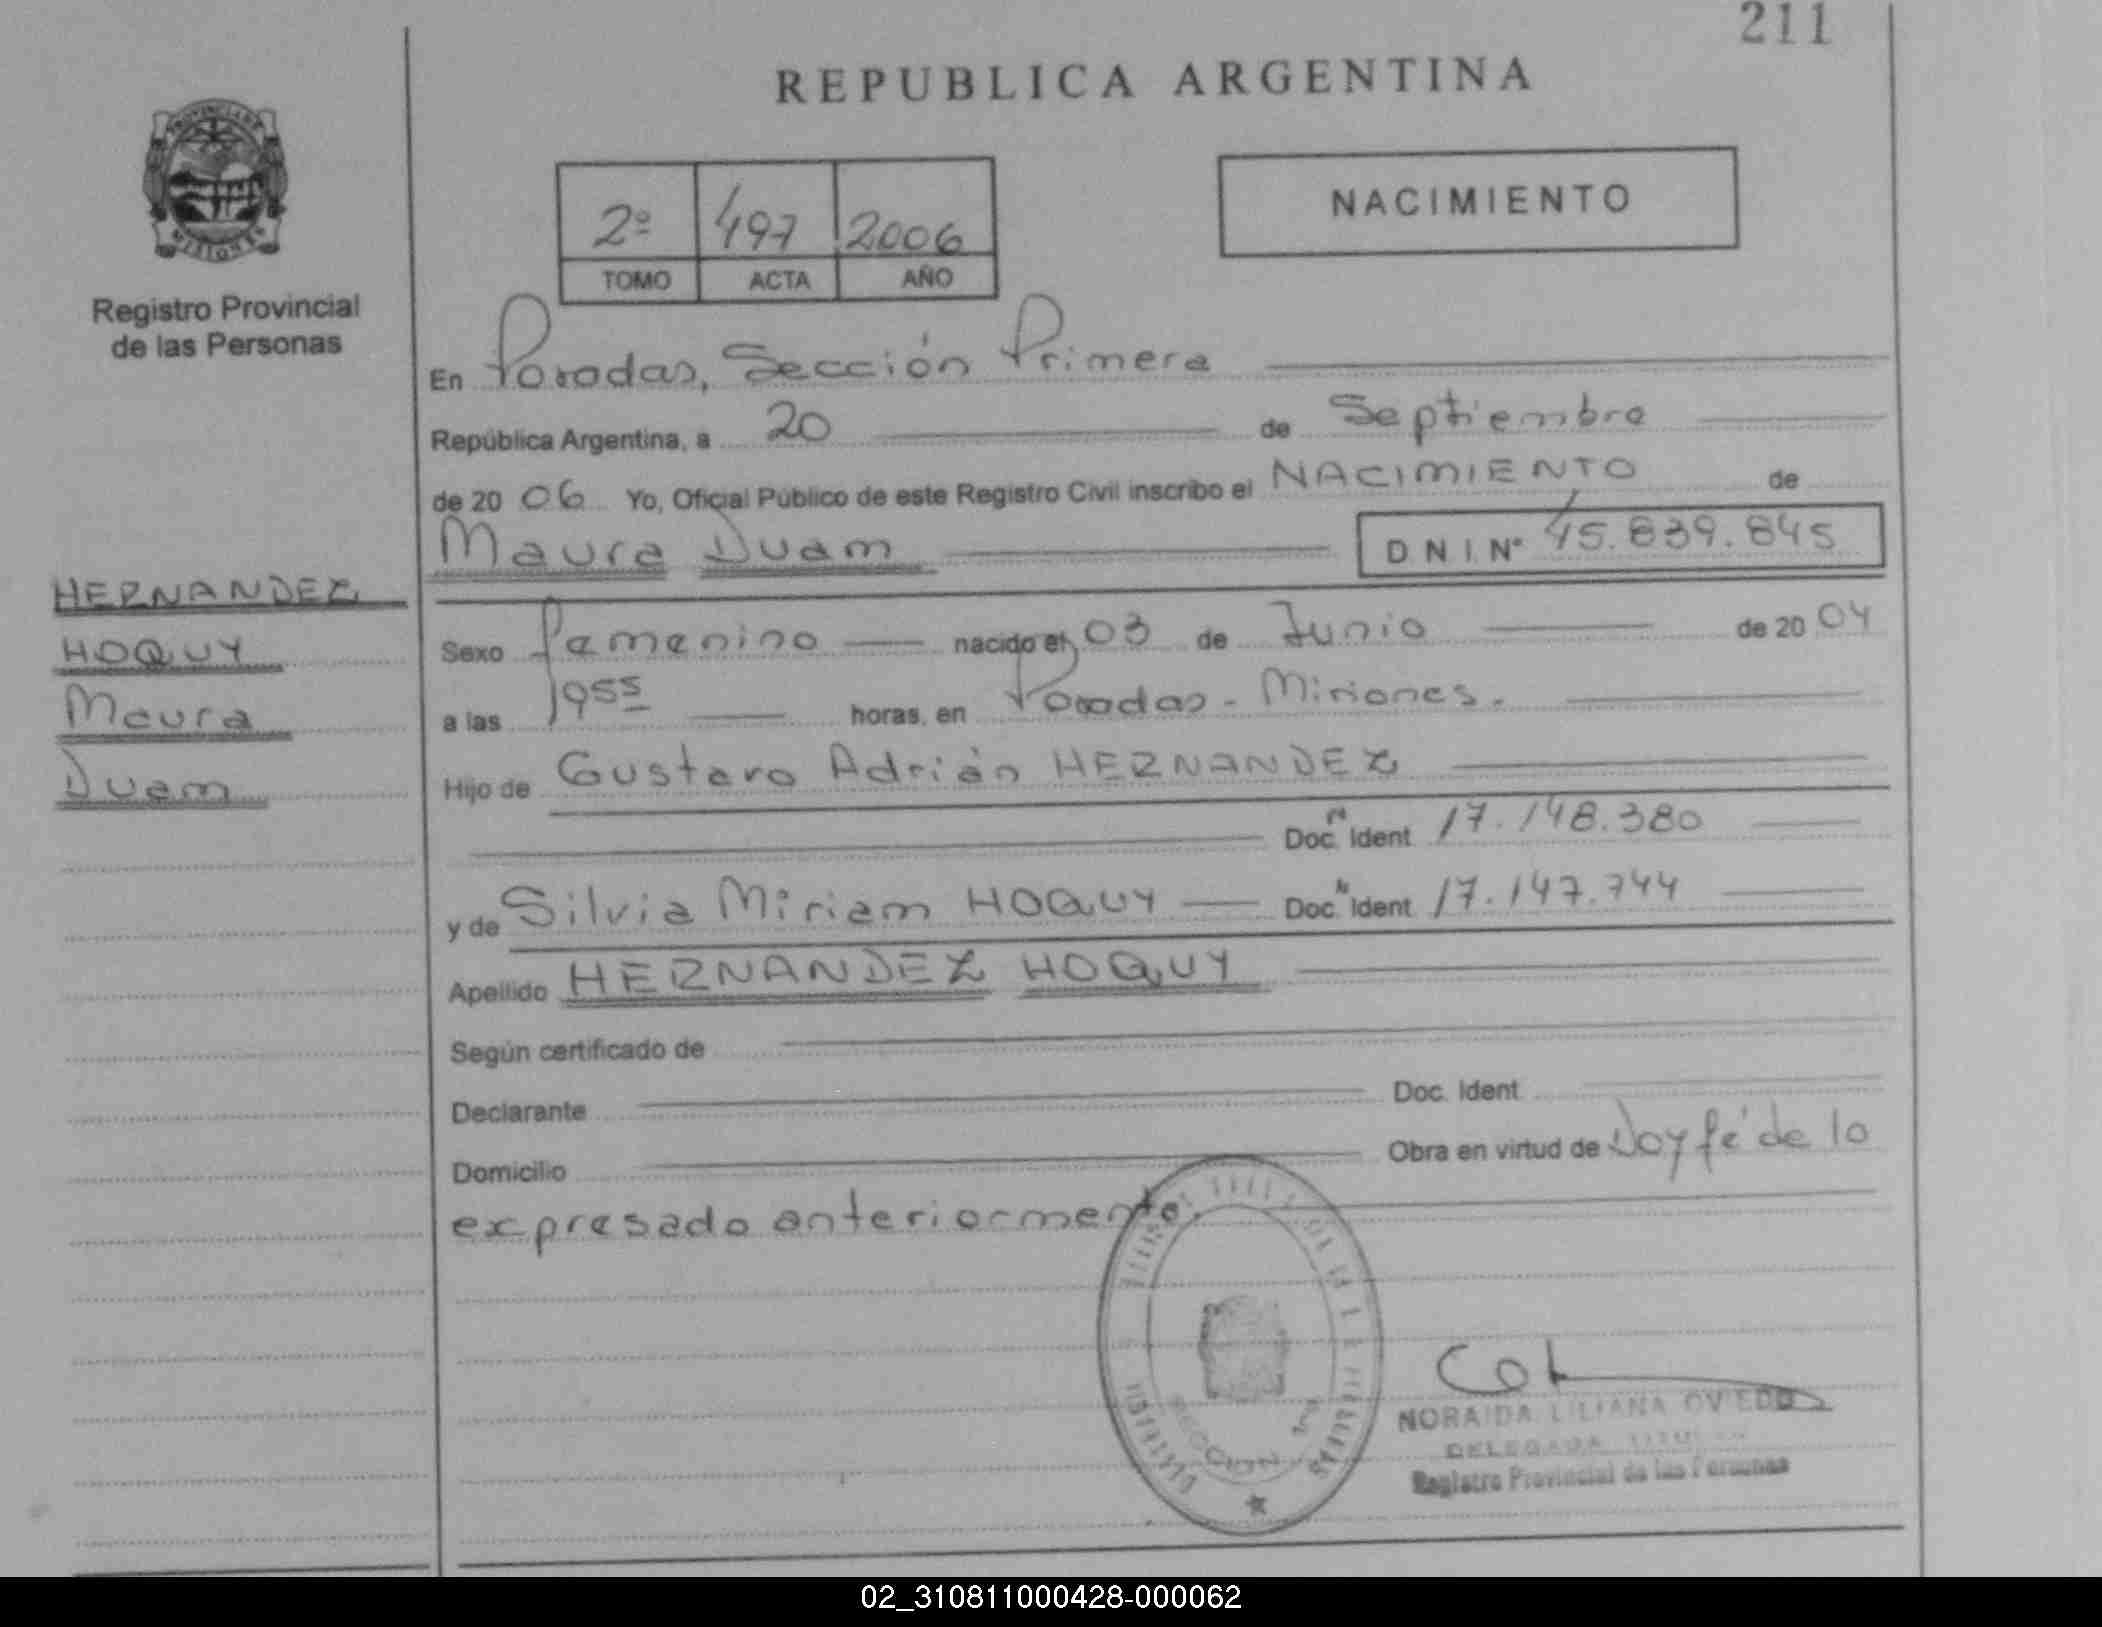 211
REPUBLICA ARGENTINA
PROVINCIA DE
MISIONES
Registro Provincial
de las Personas
2º 497 2006
TOMO ACTA AÑO
NACIMIENTO
En Posadas, Sección Primera
República Argentina, a 20 de Septiembre
de 20 06 Yo, Oficial Público de este Registro Civil inscribo el NACIMIENTO de
Maura Duam DNI Nº 45.839.845
HERNANDEZ
HOQUY
Maura
Duam
Sexo femenino nacido el 03 de Junio de 20 04
a las 19 55 horas, en Posadas - Misiones.
Hijo de Gustavo Adrián HERNANDEZ
Doc. Ident 17.148.380
y de Silvia Miriam HOQUY Doc. Ident 17.147.744
Apellido HERNANDEZ HOQUY
Según certificado de
Declarante Doc. Ident
Domicilio Obra en virtud de Doy fé de lo
expresado anteriormente.
SECCION 1ra
NORAIDA LILIANA OVIEDO
DELEGADA TITULAR
Registro Provincial de las Personas
02_310811000428-000062